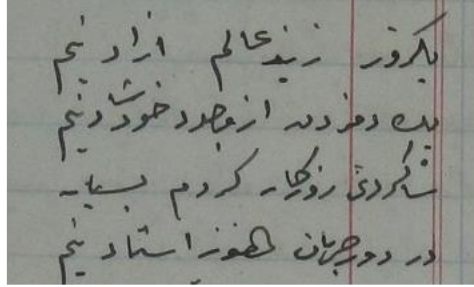 یکروز ز بند عالم ازاد نیم
یک دمزدن از وجود خود شاد نیم
شاگردی روزگار کردم بسیار
در دور جهان هنوز استاد نیم